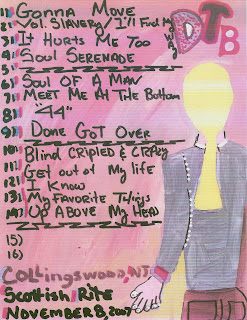 1) Gonna Move
2) Vol. Slavery / I'll Find My Way
3) It Hurts Me Too
4) Soul Serenade
5)
6) Soul Of A Man
7) Meet Me At The Bottom
8) "44"
9) Done Got Over
10) Blind, Cripled & Crazy
11) Get out of My life
12) I Know
13) My Favorite Things
14) Up Above My Head
15)
16)
DTB
Collingswood, NJ
Scottish Rite
November 8, 2007